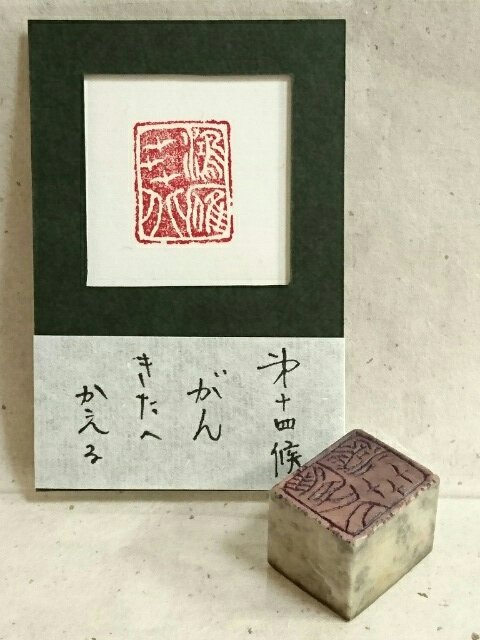 鴻雁
北
第十四候
がん
きたへ
かえる